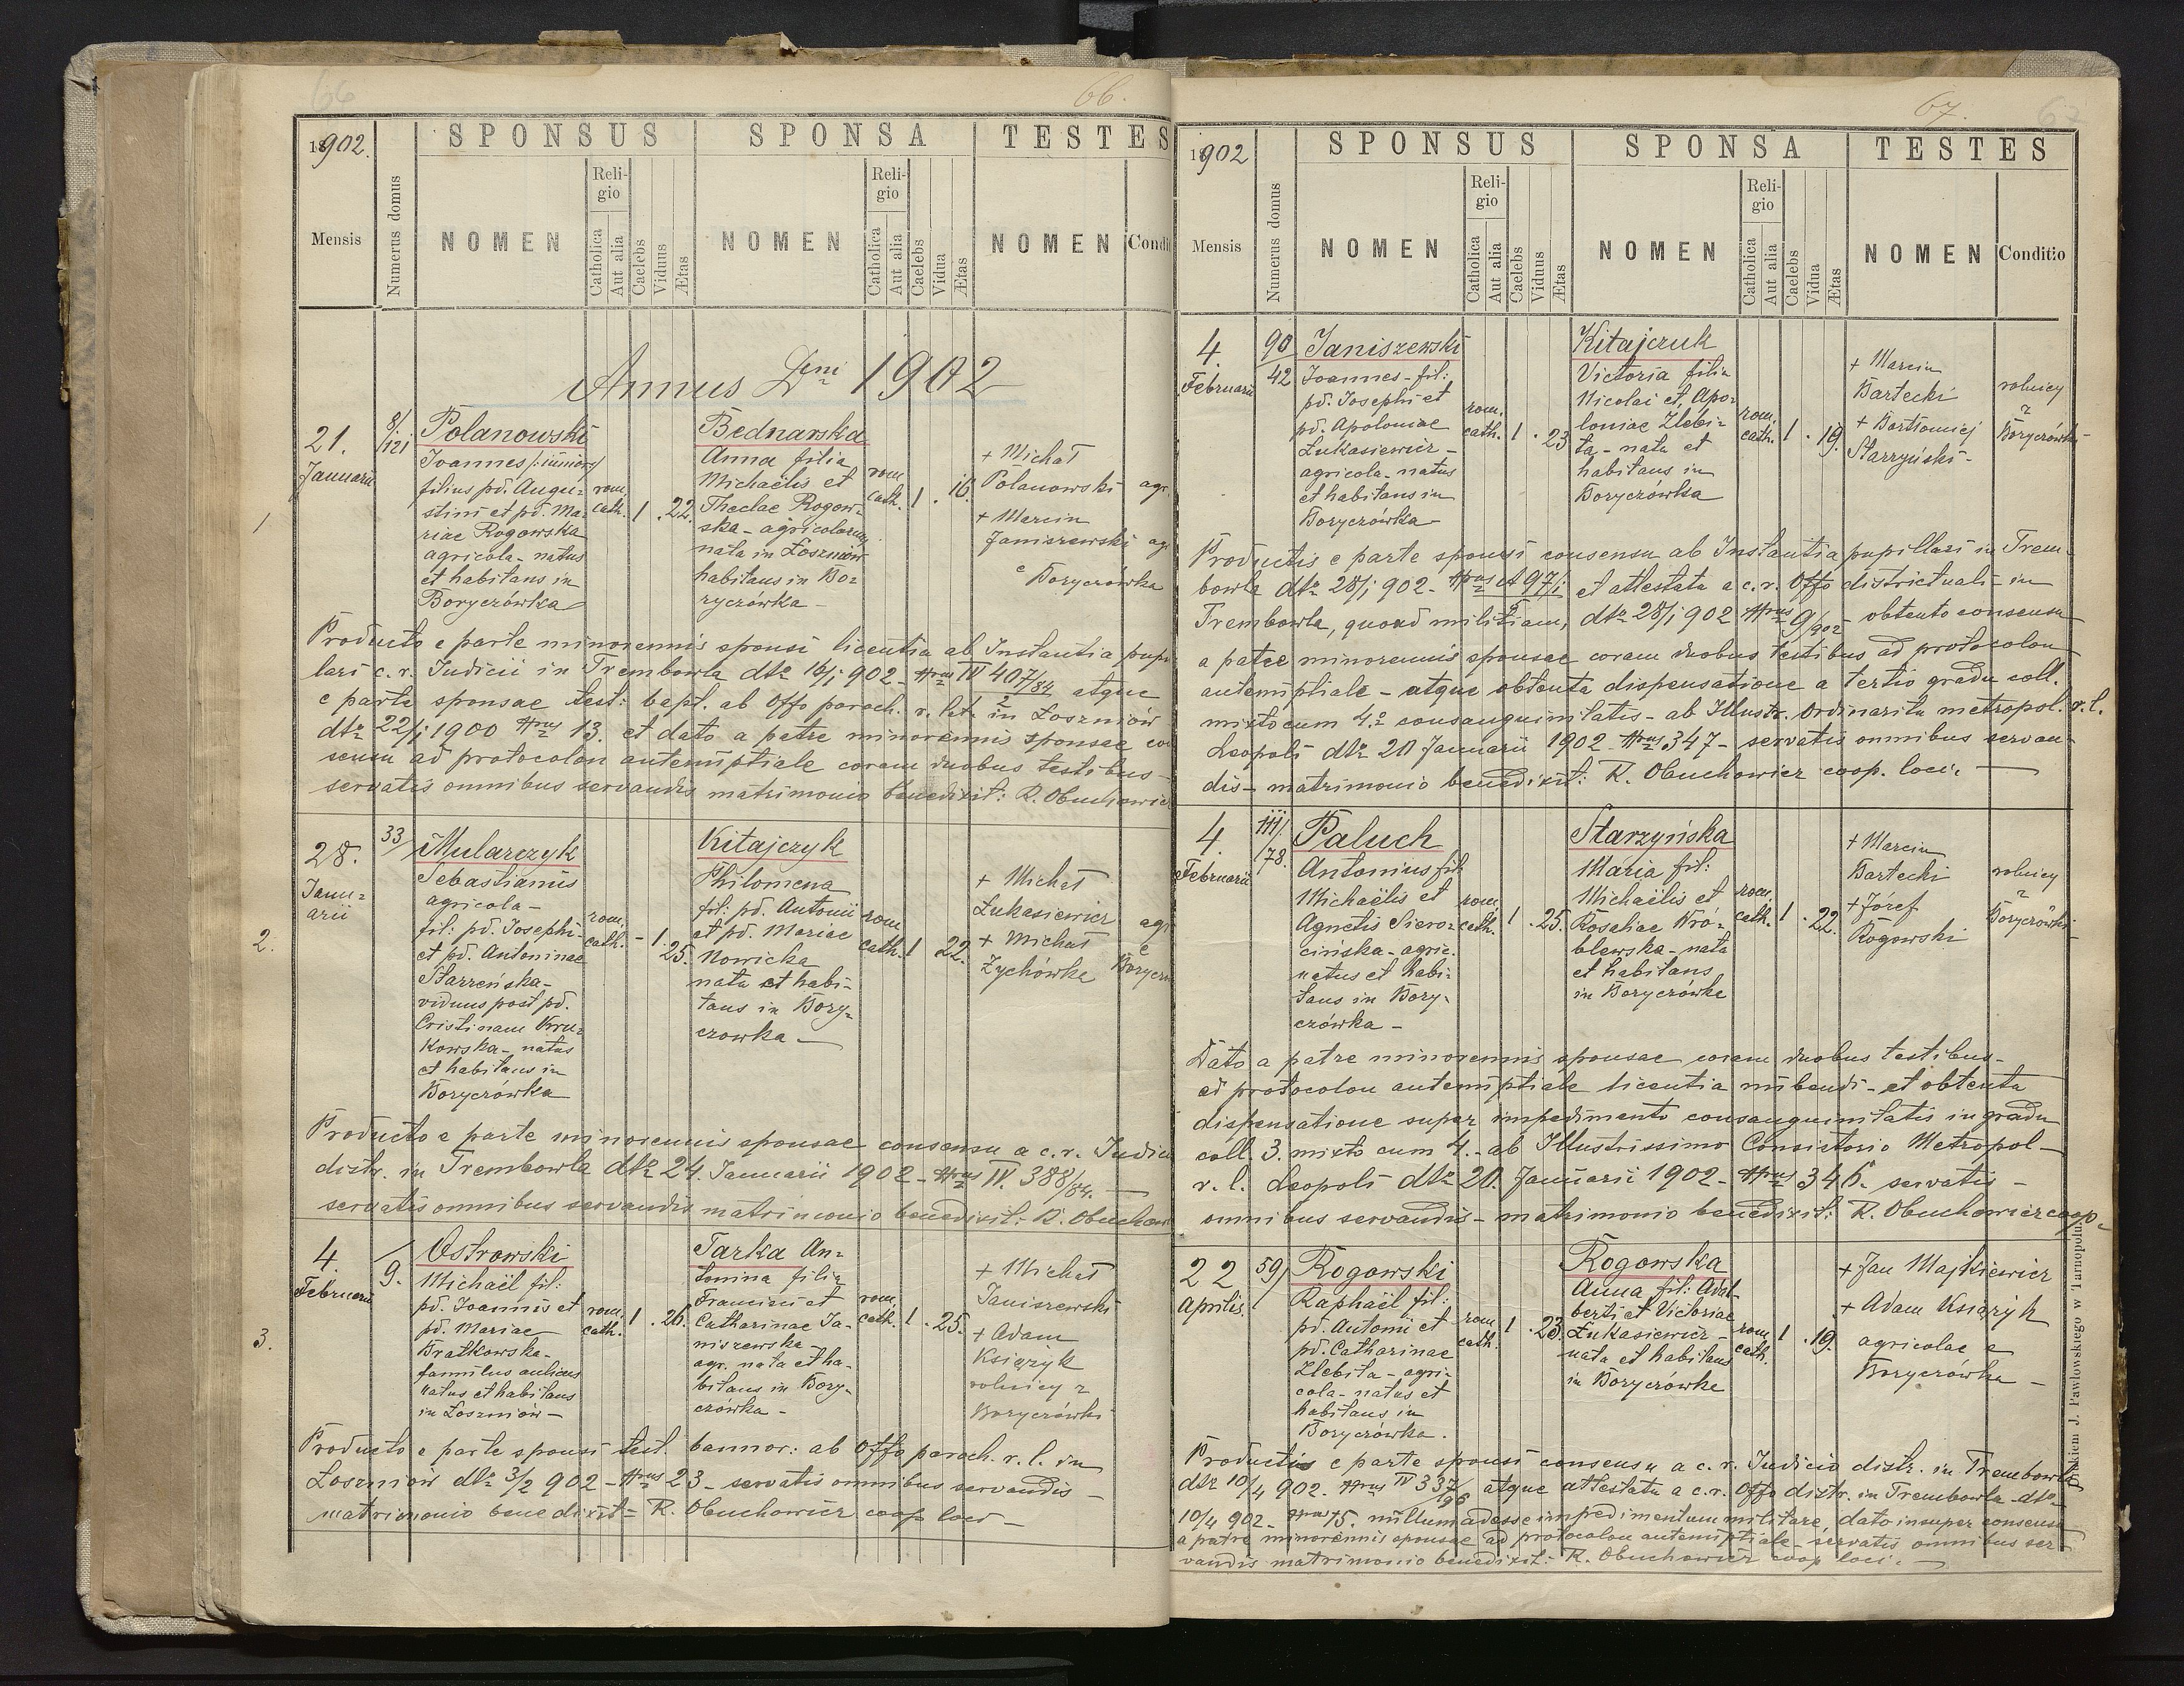 66 66.
1902.
Mensis
Numerus domus
SPONSUS
NOMEN
Religio
Catholica
Aut alia
Caelebs
Viduus
Ætas
SPONSA
NOMEN
Religio
Catholica
Aut alia
Caelebs
Vidua
Ætas
TESTES
NOMEN
Condi
Annus Dni 1902
1
21.
Januarii
8/121
Polanowski
Joannes /:iunior:/
filius pd. Augu-
stini et pd. Ma-
riae Rogowska
agricola - natus
et habitans in
Boryczówka
rom.
cath. 1 . 22.
Bednarska
Anna filia
Michaëlis et
Theclae Rogow-
ska - agricolarum
nata in Łoszniów
habitans in Bo-
ryczówka -
rom.
cath. 1 . 16.
+ Michał
Polanowski agr.
+ Marcin
Janiszewski ag
e Boryczówka
Producto e parte minorennis sponsi licentia ab Instantia pupi
lari c. r. Judicii in Trembowla dto 16/1 902 - Nrus IV 407/84 atque
e parte sponsae test: bapt. ab Offo paroch. r. lat. in Łoszniów
dto 22/1 1900 Nrus 13. et dato a patre minorennis sponsae con
sensu ad protocolon antenuptiale coram duobus testibus -
servatis omnibus servandis matrimonio benedixit: R. Obuchowicz
2.
28.
Janu-
arii
33/
Mularczyk
Sebastianus
agricola -
fil: pd. Josephi
et pd. Antoninae
Starzeńska -
viduus post pd.
Cristinam Kru-
kowska - natus
et habitans in
Boryczówka
rom.
cath. - 1. 25.
Kitajczyk
Philomena
fil: pd. Antonii
et pd. Mariae
Nowicka
nata et habi-
tans in Bory-
czowka -
rom.
cath. 1 22.
+ Michał
Łukasiewicz agr
+ Michał e
Zychówka Borycz
Producto e parte minorennis sponsae consensu a c. r. Judici
distr. in Trembowla dto 24. Januarii 1902 - Nrus IV. 388/84. -
servatis omnibus servandis matrimonio benedixit: R. Obuchow
3.
4.
Februarii
9.
Ostrowski
Michaël fil:
pd. Joannis et
pd. Mariae
Bratkowska -
famulus aulicus
natus et habitans
in Łoszniów -
rom.
cath. 1 . 26.
Tarka An-
tonina filia
Francisci et
Catharinae Ja-
niszewska -
agr. nata et ha-
bitans in Bory-
czówka -
rom.
cath. 1 . 25.
+ Michał
Janiszewski
+ Adam
Książyk
rolnicy z
Boryczówki
Producto e parte sponsi test. bannor: ab Offo paroch. r. l. in
Łoszniów dto 3/2 902 - Nrus 23 - servatis omnibus servandis -
matrimonio benedixit - R. Obuchowicz coop loci -
67. 67
1902
Mensis
Numerus domus
SPONSUS
NOMEN
Religio
Catholica
Aut alia
Caelebs
Viduus
Ætas
SPONSA
NOMEN
Religio
Catholica
Aut alia
Caelebs
Vidua
Ætas
TESTES
NOMEN
Conditio
4.
Februarii
90/42
Janiszewski
Joannes - fil:
pd. Josephi et
pd. Apoloniae
Łukasiewicz -
agricola - natus
et habitans in
Boryczówka -
rom.
cath. 1 . 23
Kitajczuk
Victoria filia
Nicolai et Apo-
loniae Zlebi-
ta - nata et
habitans in
Boryczówka
rom.
cath. 1 . 19.
+ Marcin
Bartecki
+ Bartłomiej
Starzyński -
rolnicy
z
Boryczówki -
Productis e parte sponsi consensu ab Instantia pupillari in Trem-
bowla dto 28/1 902 - Nrus 97/1 et attestatu a c. r. Offo districtuali in
Trembowla, quoad militiam, dto 28/1 902 Nrus 9/902 obtento consensu
a patre minorennis sponsae coram duobus testibus ad protocolon
antenuptiale - atque obtenta dispensatione a tertio gradu coll.
mixto cum 4.o consanguinitatis - ab Illustr. Ordinariatu metropol. r. l.
Leopoli dto 20 Januarii 1902 - Nrus 347 - servatis omnibus servan-
dis - matrimonio benedixit: R. Obuchowicz coop. loci. -
4.
Februarii
111/78.
Paluch
Antonius fil:
Michaëlis et
Agnetis Siero-
cińska - agric.
natus et habi-
tans in Bory-
czówka -
rom.
cath. 1 . 25.
Starzyńska
Maria fil:
Michaëlis et
Rosaliae Wró-
blewska - nata
et habitans
in Boryczówka
rom.
cath. 1 . 22.
+ Marcin
Bartecki
+ Józef
Rogowski
rolnicy
z
Boryczówki
Dato a patre minorennis sponsae coram duobus testibus -
ad protocolon antenuptiale licentia nubendi - et obtenta
dispensatione super impedimento consanguinitatis in gradu
coll. 3. mixto cum 4. - ab Illustrissimo Consistorio Metropol -
r. l. Leopoli dto 20. Januarii 1902 - Nrus 346. servatis -
omnibus servandis - matrimonio benedixit: R. Obuchowicz coop -
22
Aprilis.
59/
Rogowski
Raphaël fil:
pd. Antonii et
pd. Catharinae
Zlebita - agri-
cola - natus et
habitans in
Boryczówka.
rom.
cath. 1 . 23.
Rogowska
Anna fil: Adal-
berti et Victoriae
Łukasiewicz -
nata et habitans
in Boryczówka
rom.
cath. 1 . 19.
+ Jan Majkiewicz
+ Adam Książyk
agricolae e
Boryczówka -
Productis e parte sponsi consensu a c. r. Judicio distr. in Trembowla
dto 10/4 902. Nrus IV 337/96 atque attestatu a c. r. Offo distr. in Trembowla dto
10/4 902 - Nrus 75. nullum adesse impedimentum militare, dato insuper consensu
a patre minorennis sponsae ad protocolon antenuptiale - servatis omnibus ser-
vandis matrimonio benedixit: - R. Obuchowicz coop loci. -
J. Pawłowskiego w Tarnopolu.